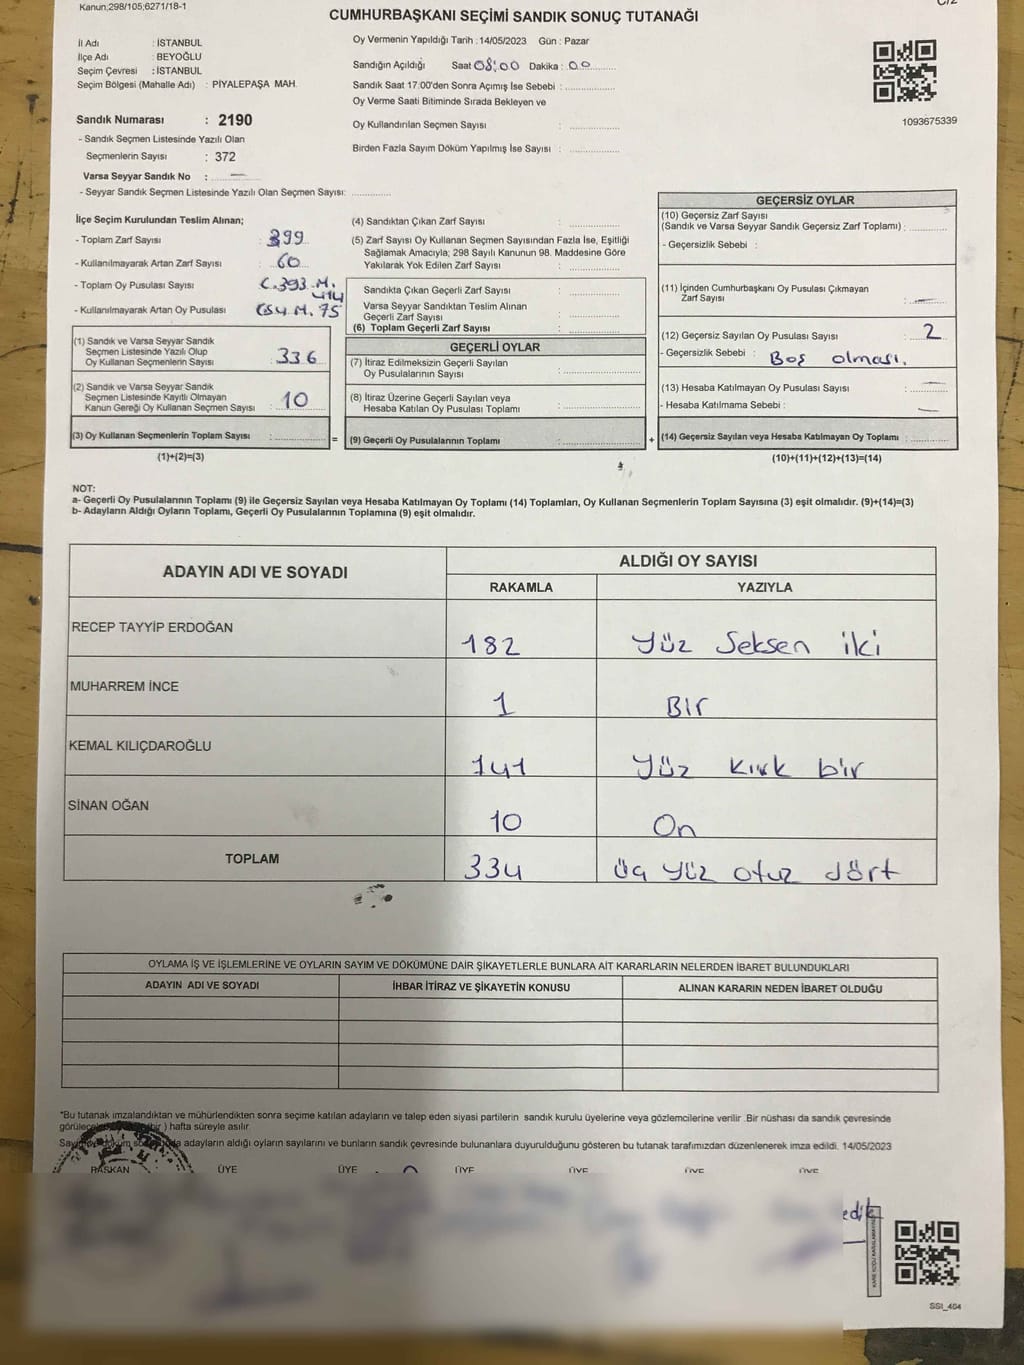 Kanun;298/105;6271/18-1
CUMHURBAŞKANI SEÇİMİ SANDIK SONUÇ TUTANAĞI
İl Adı : İSTANBUL
İlçe Adı : BEYOĞLU
Seçim Çevresi : İSTANBUL
Seçim Bölgesi (Mahalle Adı) : PİYALEPAŞA MAH.
Sandık Numarası : 2190
- Sandık Seçmen Listesinde Yazılı Olan
Seçmenlerin Sayısı : 372
Varsa Seyyar Sandık No :
- Seyyar Sandık Seçmen Listesinde Yazılı Olan Seçmen Sayısı:
Oy Vermenin Yapıldığı Tarih : 14/05/2023 Gün : Pazar
Sandığın Açıldığı Saat 08:00 Dakika : 00
Sandık Saat 17:00'den Sonra Açımış İse Sebebi :
Oy Verme Saati Bitiminde Sırada Bekleyen ve
Oy Kullandırılan Seçmen Sayısı :
Birden Fazla Sayım Döküm Yapılmış İse Sayısı :
1093675339
İlçe Seçim Kurulundan Teslim Alınan;
- Toplam Zarf Sayısı : 399
- Kullanılmayarak Artan Zarf Sayısı : 60
- Toplam Oy Pusulası Sayısı : C.393.M. 414
- Kullanılmayarak Artan Oy Pusulası : C54 M. 75
(1) Sandık ve Varsa Seyyar Sandık
Seçmen Listesinde Yazılı Olup
Oy Kullanan Seçmenlerin Sayısı : 336
(2) Sandık ve Varsa Seyyar Sandık
Seçmen Listesinde Kayıtlı Olmayan
Kanun Gereği Oy Kullanan Seçmen Sayısı : 10
(3) Oy Kullanan Seçmenlerin Toplam Sayısı :
(1)+(2)=(3)
(4) Sandıktan Çıkan Zarf Sayısı :
(5) Zarf Sayısı Oy Kullanan Seçmen Sayısından Fazla İse, Eşitliği
Sağlamak Amacıyla; 298 Sayılı Kanunun 98. Maddesine Göre
Yakılarak Yok Edilen Zarf Sayısı :
Sandıkta Çıkan Geçerli Zarf Sayısı :
Varsa Seyyar Sandıktan Teslim Alınan
Geçerli Zarf Sayısı :
(6) Toplam Geçerli Zarf Sayısı :
GEÇERLİ OYLAR
(7) İtiraz Edilmeksizin Geçerli Sayılan
Oy Pusulalarının Sayısı :
(8) İtiraz Üzerine Geçerli Sayılan veya
Hesaba Katılan Oy Pusulası Toplamı :
= (9) Geçerli Oy Pusulalarının Toplamı :
GEÇERSİZ OYLAR
(10) Geçersiz Zarf Sayısı
(Sandık ve Varsa Seyyar Sandık Geçersiz Zarf Toplamı) :
- Geçersizlik Sebebi :
(11) İçinden Cumhurbaşkanı Oy Pusulası Çıkmayan
Zarf Sayısı :
(12) Geçersiz Sayılan Oy Pusulası Sayısı : 2
- Geçersizlik Sebebi : Boş olması.
(13) Hesaba Katılmayan Oy Pusulası Sayısı :
- Hesaba Katılmama Sebebi :
+ (14) Geçersiz Sayılan veya Hesaba Katılmayan Oy Toplamı :
(10)+(11)+(12)+(13)=(14)
NOT:
a- Geçerli Oy Pusulalarının Toplamı (9) ile Geçersiz Sayılan veya Hesaba Katılmayan Oy Toplamı (14) Toplamları, Oy Kullanan Seçmenlerin Toplam Sayısına (3) eşit olmalıdır. (9)+(14)=(3)
b- Adayların Aldığı Oyların Toplamı, Geçerli Oy Pusulalarının Toplamına (9) eşit olmalıdır.
ADAYIN ADI VE SOYADI ALDIĞI OY SAYISI
RAKAMLA YAZIYLA
RECEP TAYYİP ERDOĞAN 182 Yüz Seksen iki
MUHARREM İNCE 1 Bir
KEMAL KILIÇDAROĞLU 141 Yüz kırk bir
SİNAN OĞAN 10 On
TOPLAM 334 üç yüz otuz dört
OYLAMA İŞ VE İŞLEMLERİNE VE OYLARIN SAYIM VE DÖKÜMÜNE DAİR ŞİKAYETLERLE BUNLARA AİT KARARLARIN NELERDEN İBARET BULUNDUKLARI
ADAYIN ADI VE SOYADI İHBAR İTİRAZ VE ŞİKAYETİN KONUSU ALINAN KARARIN NEDEN İBARET OLDUĞU
*Bu tutanak imzalandıktan ve mühürlendikten sonra seçime katılan adayların ve talep eden siyasi partilerin sandık kurulu üyelerine veya gözlemcilerine verilir. Bir nüshası da sandık çevresinde
hafta süreyle asılır.
adayların aldığı oyların sayılarını ve bunların sandık çevresinde bulunanlara duyurulduğunu gösteren bu tutanak tarafımızdan düzenlenerek imza edildi. 14/05/2023
BAŞKAN ÜYE ÜYE ÜYE ÜYE ÜYE ÜYE
SSI_464